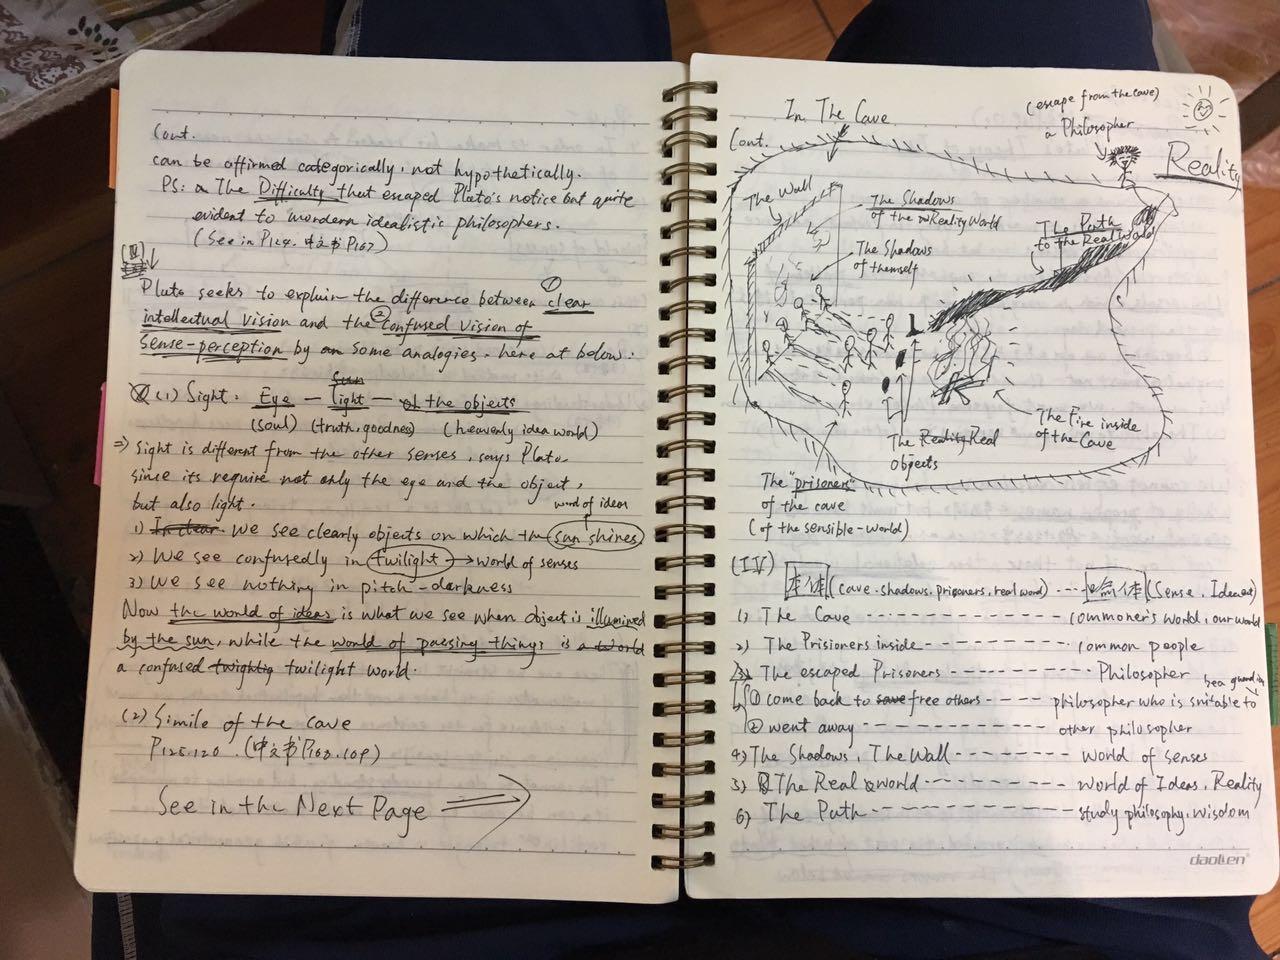 Cont.
can be affirmed categorically, not hypothetically.
PS: The Difficulty that escaped Plato's notice but quite
evident to mordern idealistic philosophers.
(See in P124. 中文书 P167)
Plato seeks to explain the difference between ① clear
intellectual vision and the ② confused vision of
sense-perception by an some analogies. here at below.
(1) Sight. Eye — light — the objects
(soul) (truth, goodness) (heavenly idea world)
⇒ Sight is different from the other senses, says Plato,
since its require not only the eye and the object,
but also light.
word of ideas
1) In clear We see clearly objects on which the sun shines
2) We see confusedly in twilight → world of senses
3) We see nothing in pitch-darkness
Now the world of ideas is what we see when object is illumined
by the sun, while the world of passing things is a world
a confused twilight world.
(2) Simile of the cave
P125.126. (中文书 P168.169)
See in the Next Page
In The Cave
(escape from the cave)
a Philosopher
Cont.
Reality
The Wall
The Shadows
of the Reality World
The Path
to the Real World
The Shadows
of themself
The Fire inside
of the Cave
The Reality Real
objects
The "prisoners"
of the cave
(of the sensible-world)
(IV)
本体 (cave. shadows. prisoners. real word) ---- 喻体 (Sense. Idea
1) The Cave ---- commoner's world, our world
2) The Prisioners inside ---- common people
3) The escaped Prisoners ---- Philosopher
be a guardian
① come back to save free others ---- philosopher who is suitable to
② went away ---- other philosopher
4) The Shadows, The Wall ---- world of senses
5) The Real world ---- world of Ideas. Reality
6) The Path ---- study philosophy. wisdom
daolen